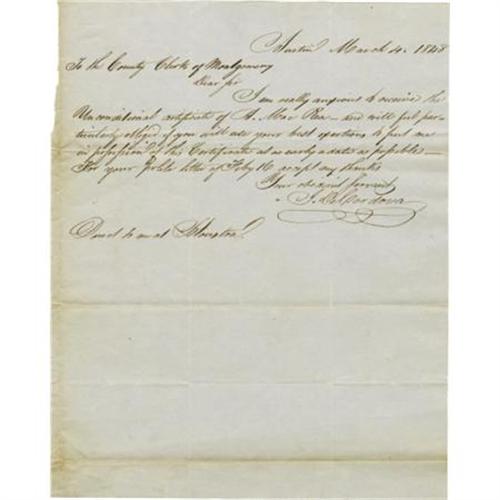 Austin March 4. 1848
To the County Clerk of Montgomery
Dear Sir
I am really anxious to receive the
Unconditional certificate of A. Mac Rae and will feel par-
ticularly obliged if you will use your best exertions to put me
in possession of the Certificate at as early a date as possible—
For your polite letter of Feby 16 accept my thanks
Your obedient servant
J. De Cordova
Direct to me at Houston